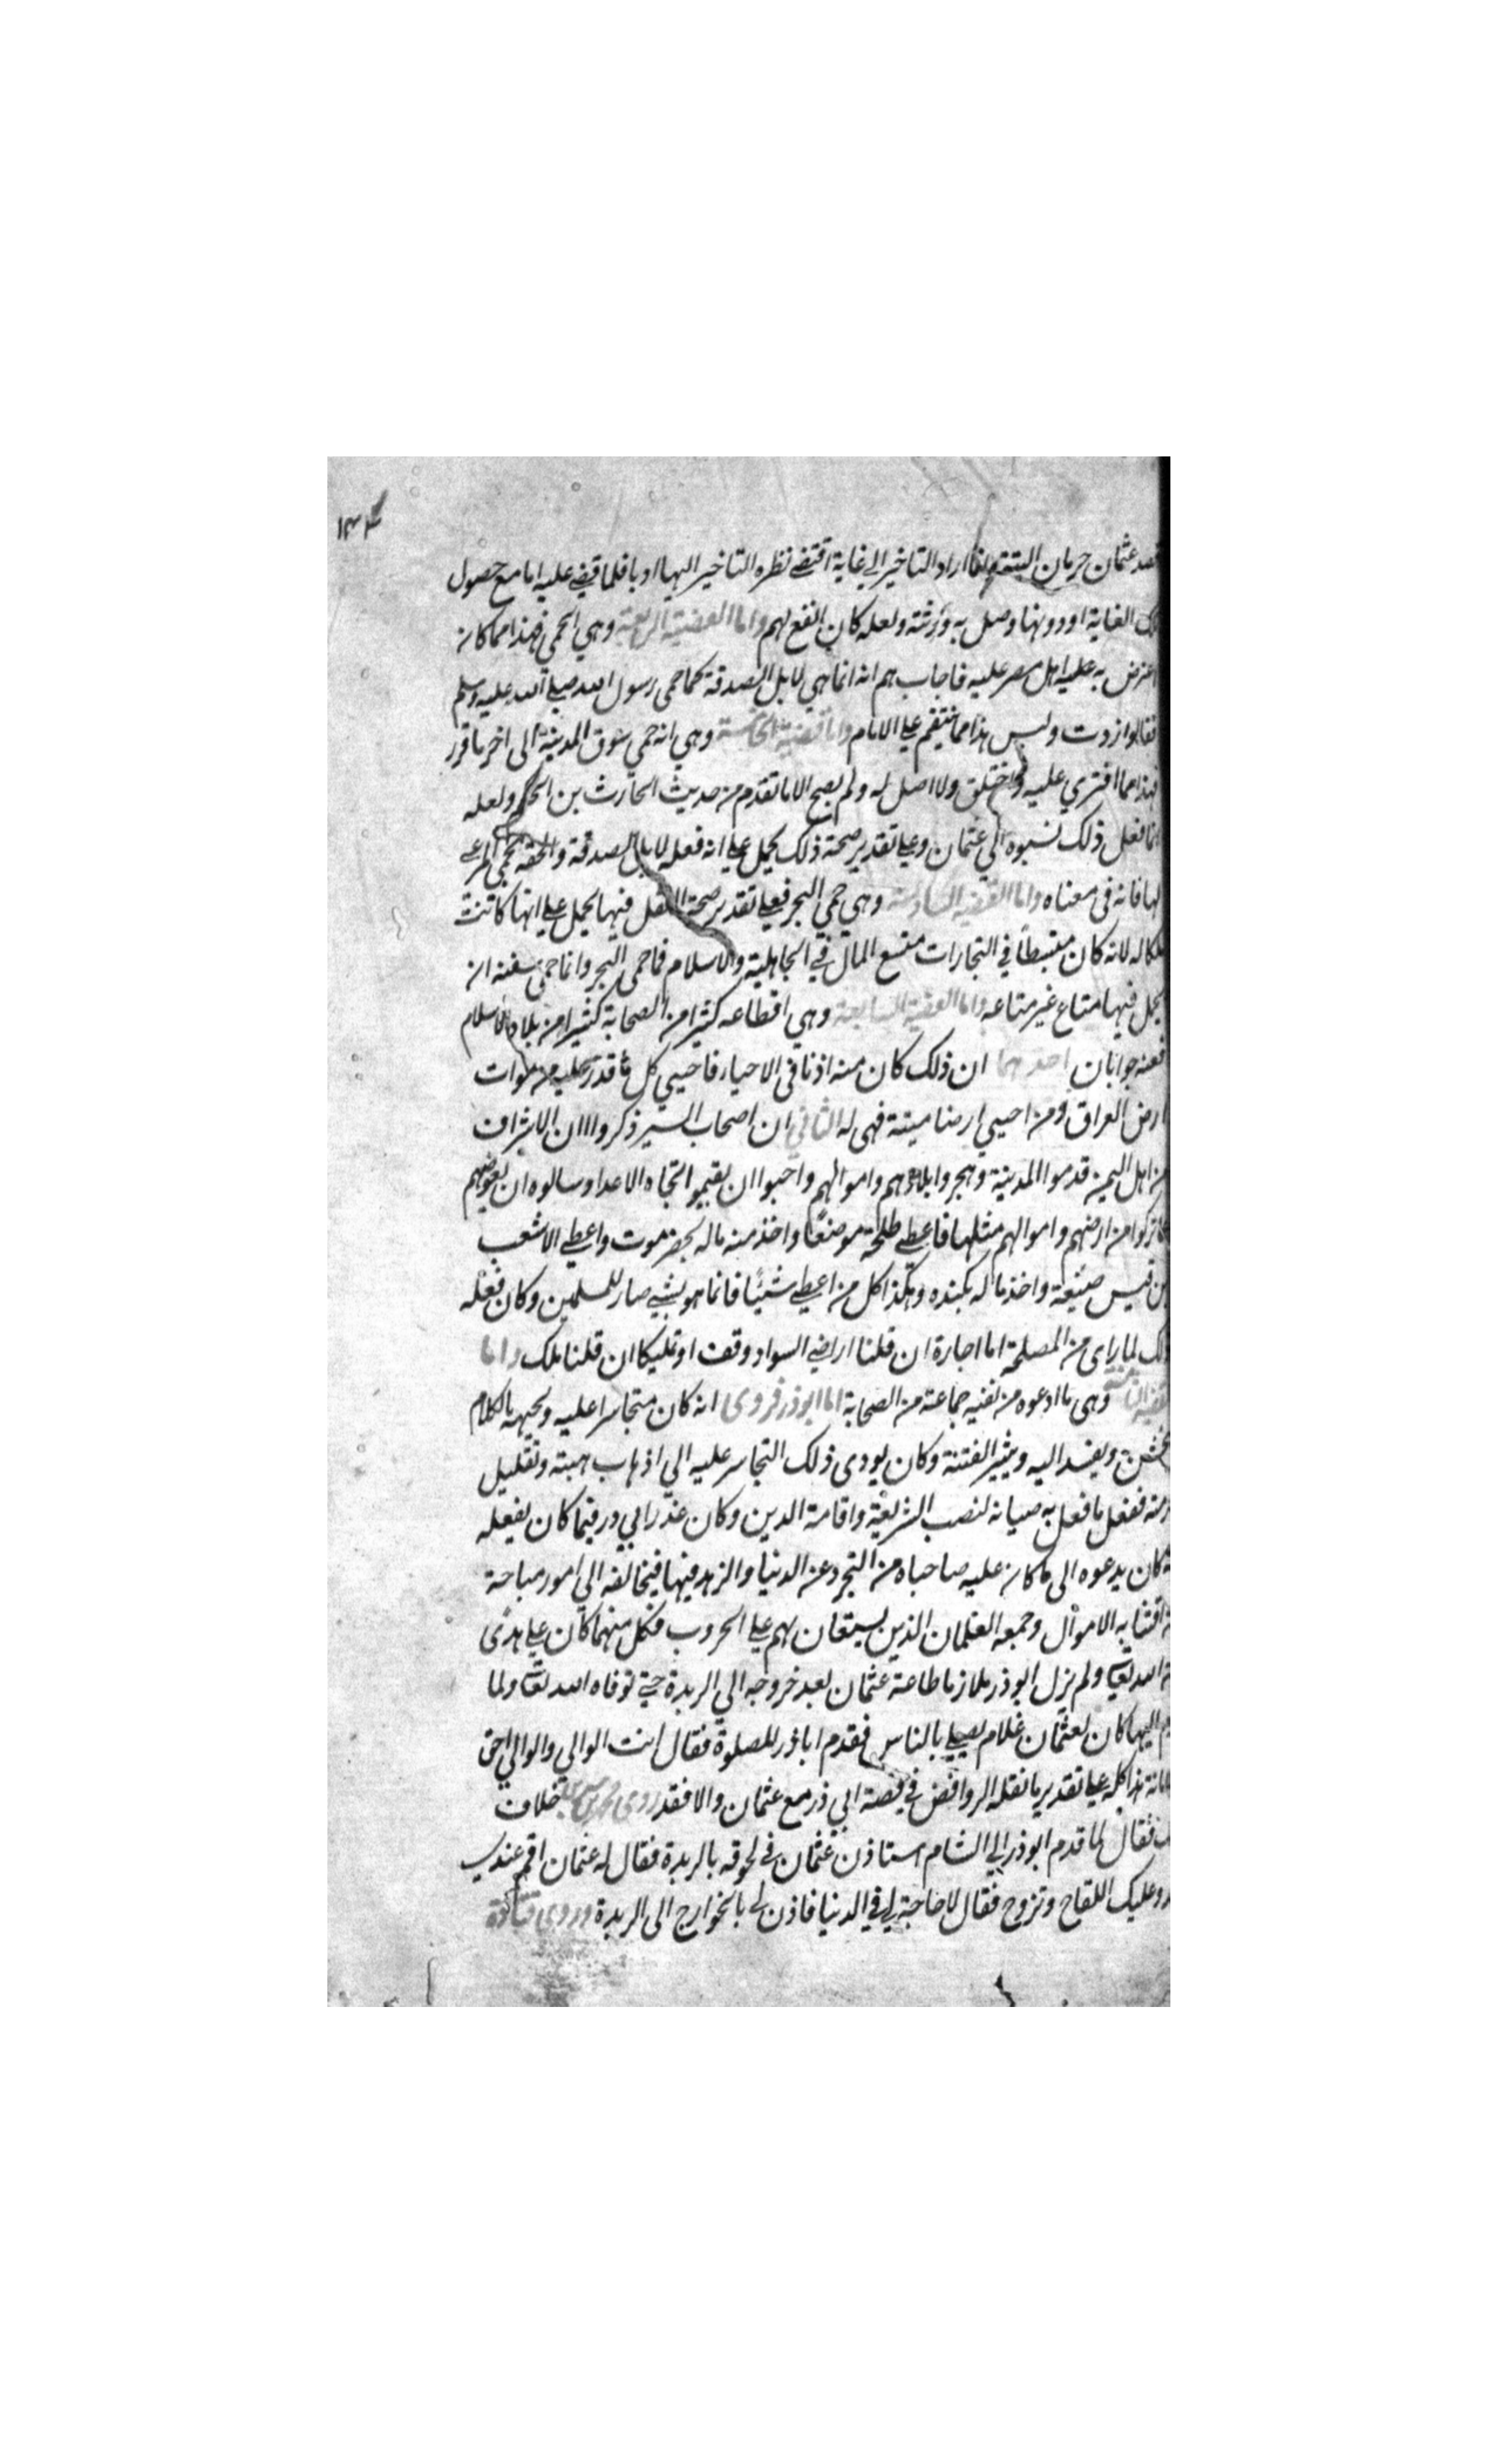 ١٣٤
قصد عثمان حرمان البتة وانما اراد التاخير الي غاية اقتضى نظره التاخير اليها ادبا فلما قضي عليه اما مع حصول
تلك الغاية او دونها وصل به ورثته ولعله كان انفع لهم واما القضية الرابعة وهي الحمي فهذا مما كان
اعترض به عليه اهل مصر عليه فاجابهم انه انما هي لابل الصدقة كما حمى رسول الله صلى الله عليه وسلم
فقالوا زدت وليس هذا مما ينقم على الامام واما قضية الخامسة وهي انه حمي سوق المدينة الى اخر ما قرر
فهذا مما افتري عليه واختلق ولا اصل له ولم يصح الا ما تقدم من حديث الحارث بن الحكم ولعله
لما فعل ذلك نسبوه الي عثمان وعلى تقدير صحة ذلك يحمل على انه فعله لابل الصدقة والحقه بحمي المرعى
لها فانه في معناه واما القضية السادسة وهي حمي البحر فعلى تقدير صحة النقل فيها يحمل على انها كانت
ملكا له لانه كان منبسطا في التجارات متسع المال في الجاهلية والاسلام فما حمى البحر وانما حمى سفنه ان
يحمل فيها متاع غير متاعه واما القضية السابعة وهي اقطاعه كثيرا من الصحابة كثيرا من بلاد الاسلام
فعنه جوابان احدهما ان ذلك كان منه اذنا في الاحياء فاحيي كل ما قدر عليه من موات
ارض العراق ومن احيي ارضا ميتة فهي له الثاني ان اصحاب السير ذكروا ان الاشراف
من اهل اليمن قدموا المدينة وهجروا بلادهم واموالهم واحبوا ان يقيموا تجاه الاعدا وسالوه ان يعوضهم
عما تركوا من ارضهم واموالهم مثلها فاعطى طلحة موضعا واخذ منه ماله بحضرموت واعطى الاشعب
بن قيس ضيعة واخذ ماله بكنده وهكذا كل من اعطى شيئا فانما هو بشي صار للمسلمين وكان فعله
ذلك لما راى من المصلحة اما اجارة ان قلنا اراضي السواد وقف او تمليكا ان قلنا ملك واما
القضية الثامنة وهي ما ادعوه من نفيه جماعة من الصحابة اما ابو ذر فروى انه كان متجاسرا عليه ويجبهه بالكلام
الخشن ويفسد اليه ويثير الفتنة وكان يودى ذلك التجاسر عليه الى اذهاب هيبته وتقليل
حرمته ففعل ما فعل به صيانة لنصب الشريعة واقامة الدين وكان عذر ابي ذر فيما كان يفعله
انه كان يدعوه الى ما كان عليه صاحباه من التجرد عن الدنيا والزهد فيها فيخالفه الي امور مباحة
من اقتنائه الاموال وجمعه الغلمان الذين يستعان بهم على الحروب فكل منهما كان على هدى
من الله تعالى ولم يزل ابو ذر ملازما طاعة عثمان بعد خروجه الي الربدة حتى توفاه الله تعالى ولما
قدم اليها كان لعثمان غلام يصلي بالناس فقدم اباذر للصلوة فقال انت الوالي والوالي احق
بالامانة هذا كله على تقدير ما نقله الروافض في قصة ابي ذر مع عثمان والا فقد روى محمد بن سيرين خلاف
ذلك فقال لما قدم ابو ذر الي الشام استاذن عثمان في لحوقه بالربدة فقال له عثمان اقم عندي
تغدو عليك اللقاح وتروح فقال لا حاجة لي في الدنيا فاذن له بالخوارج الى الربدة وروى قتادة